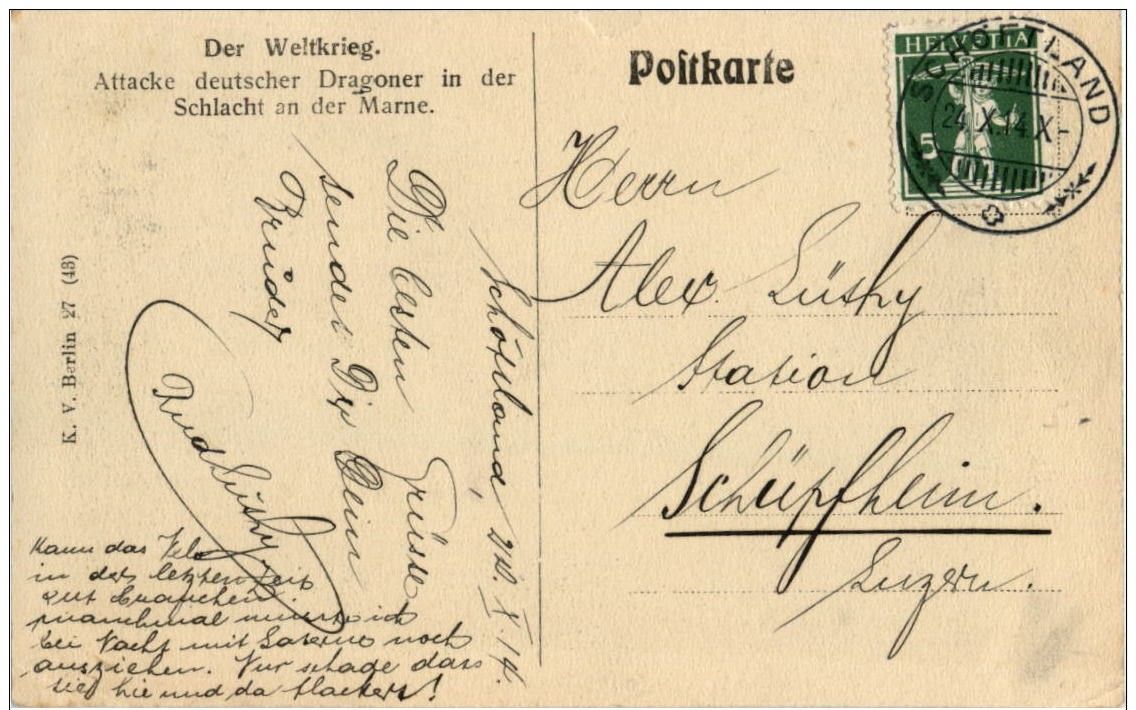 Der Weltkrieg.
Attacke deutscher Dragoner in der
Schlacht an der Marne.
Postkarte
HELVETIA
5
SCHÖFTLAND
24.X.14.X-
K. V. Berlin 27 (43)
Herrn
Alex. Lüthy
Station
Schüpfheim.
Luzern.
Schöftland, 24. X. 14.
Die besten Grüsse
sendet Dir Dein
Bruder
Rud Lüthy
Kann das Velo
in der letzten Zeit
gut brauchen.
manchmal muss ich
bei Nacht mit Laterne noch
ausziehen. Nur schade dass
sie hie und da flackert!